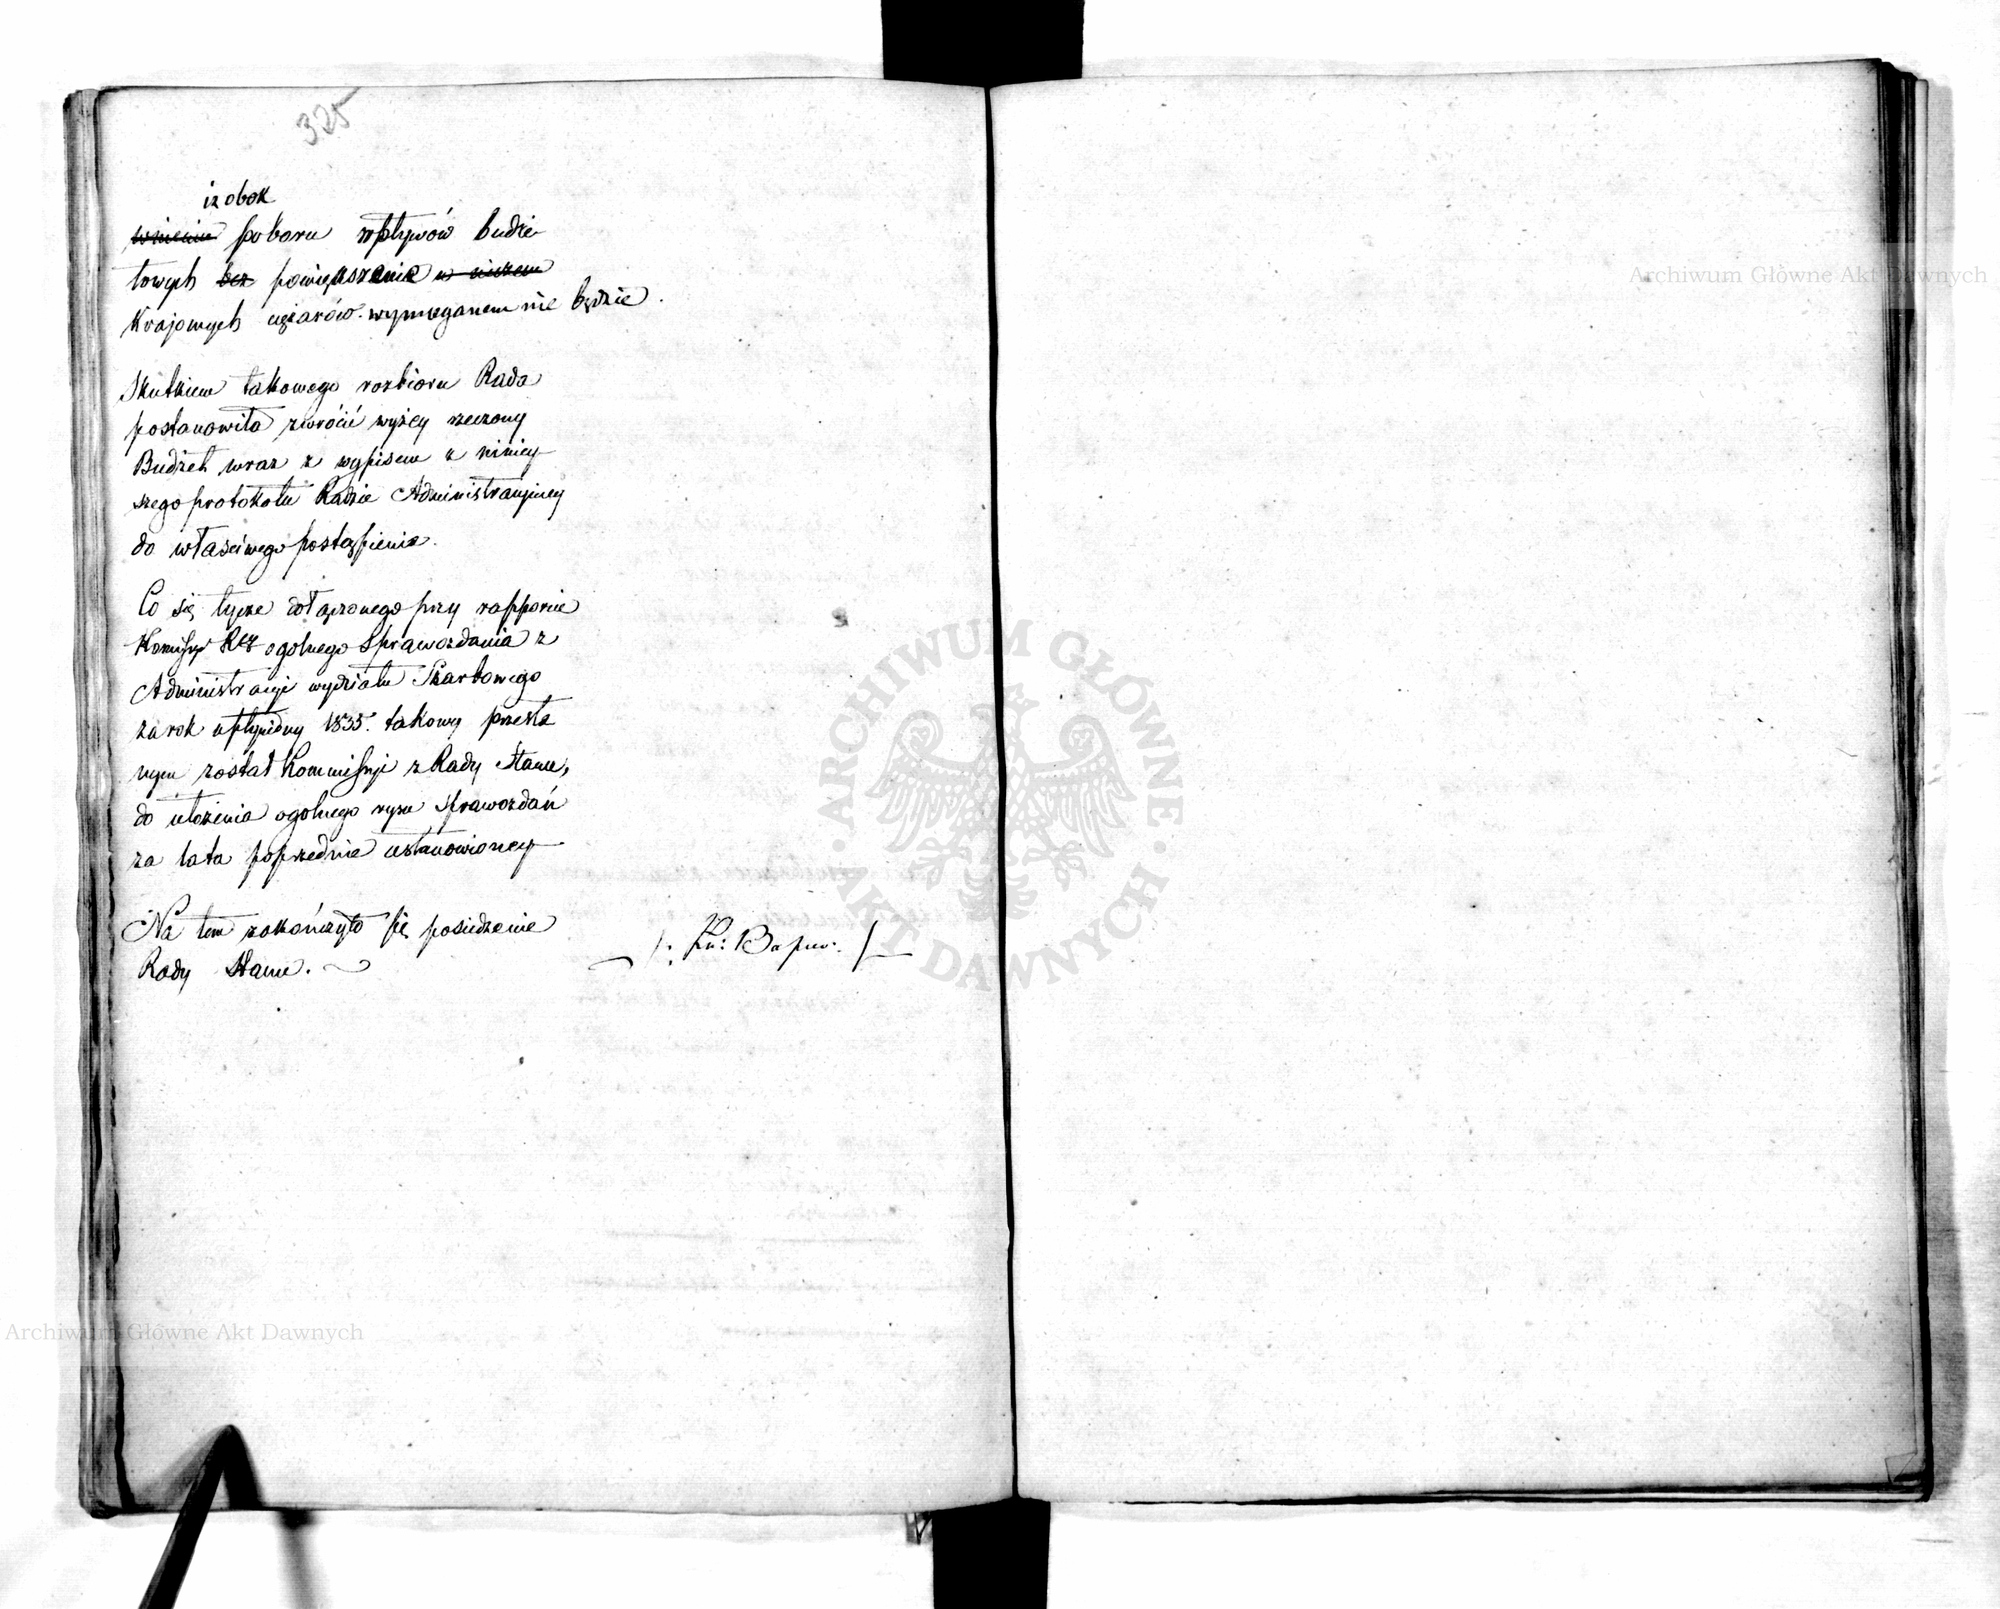 325
iż obok
wnienie poboru wpływów budże
towych bez powiększenia w niczem
Krajowych ciężarów wymaganem nie będzie.
Skutkiem takowego rozbioru Rada
postanowiła zwrócić wyżey rzeczony
Budżet wraz z wypisem z niniey
szego protokołu Radzie Administracyiney
do właściwego postąpienia.
Co się tycze dołączonego przy rapporcie
Ogolnego Sprawozdania z
Administracyi wydziału Skarbowego
za rok upłyniony 1835. takowy przesła
nym został Kommissyi z Rady Stanu,
do ułożenia ogolnego rysu Sprawozdań
za lata poprzednie ustanowioney
Na tem zakończyło się posiedzenie
Rady Stanu.
Archiwum Główne Akt Dawnych
Archiwum Główne Akt Dawnych
ARCHIWUM GŁÓWNE AKT DAWNYCH